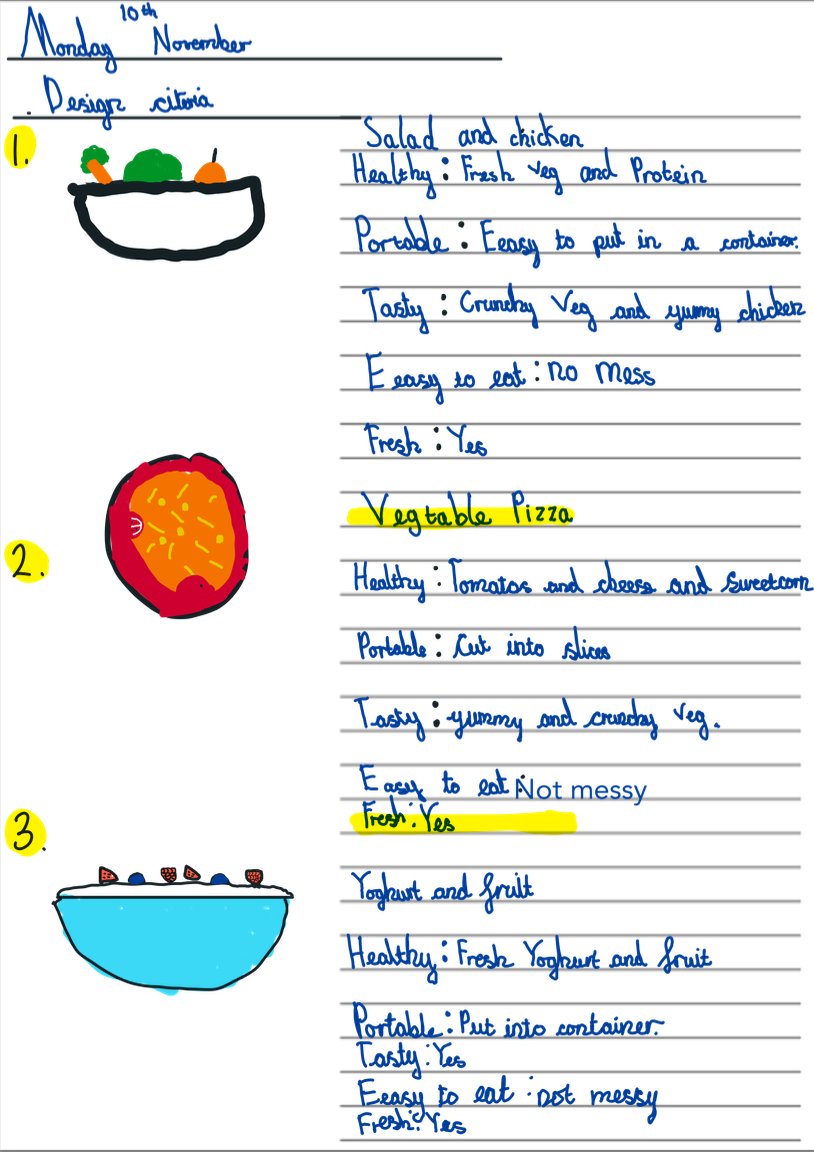 Monday 10th November
Design citeria
1.
Salad and chicken
Healthy : Fresh veg and Protein
Portable : Eeasy to put in a container.
Tasty : Crunchy Veg and yummy chicken
Eeasy to eat : no mess
Fresh : Yes
2.
Vegtable Pizza
Healthy : Tomatos and cheese and sweetcorn
Portable : Cut into slices
Tasty : yummy and crunchy veg.
Easy to eat : Not messy
Fresh : Yes
3.
Yoghurt and fruit
Healthy : Fresh Yoghurt and fruit
Portable : Put into container.
Tasty : Yes
Eeasy to eat : not messy
Fresh : Yes